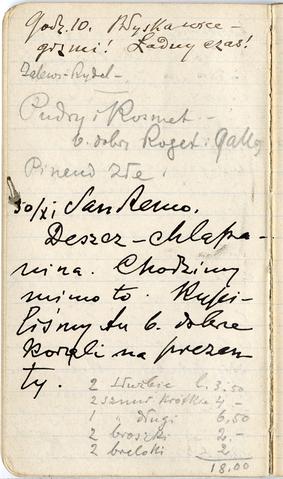 Godz. 10. Błyskawice –
grzmi! Ładny czas!
Zalews-Rydel –
Pudry i Kosmet. –
b. dobry Roget i Gallet
Pinend złe.
30/XI San Remo.
Deszcz – chlapa-
nina. Chodzimy
mimo to. Kupi-
liśmy tu b. dobre
korali na prezen-
ty.
2 l. 3,50
2 sznur. krótkie 4 –
1 " długi 6,50
2 broszki 2. –
2 breloki 2
18.00